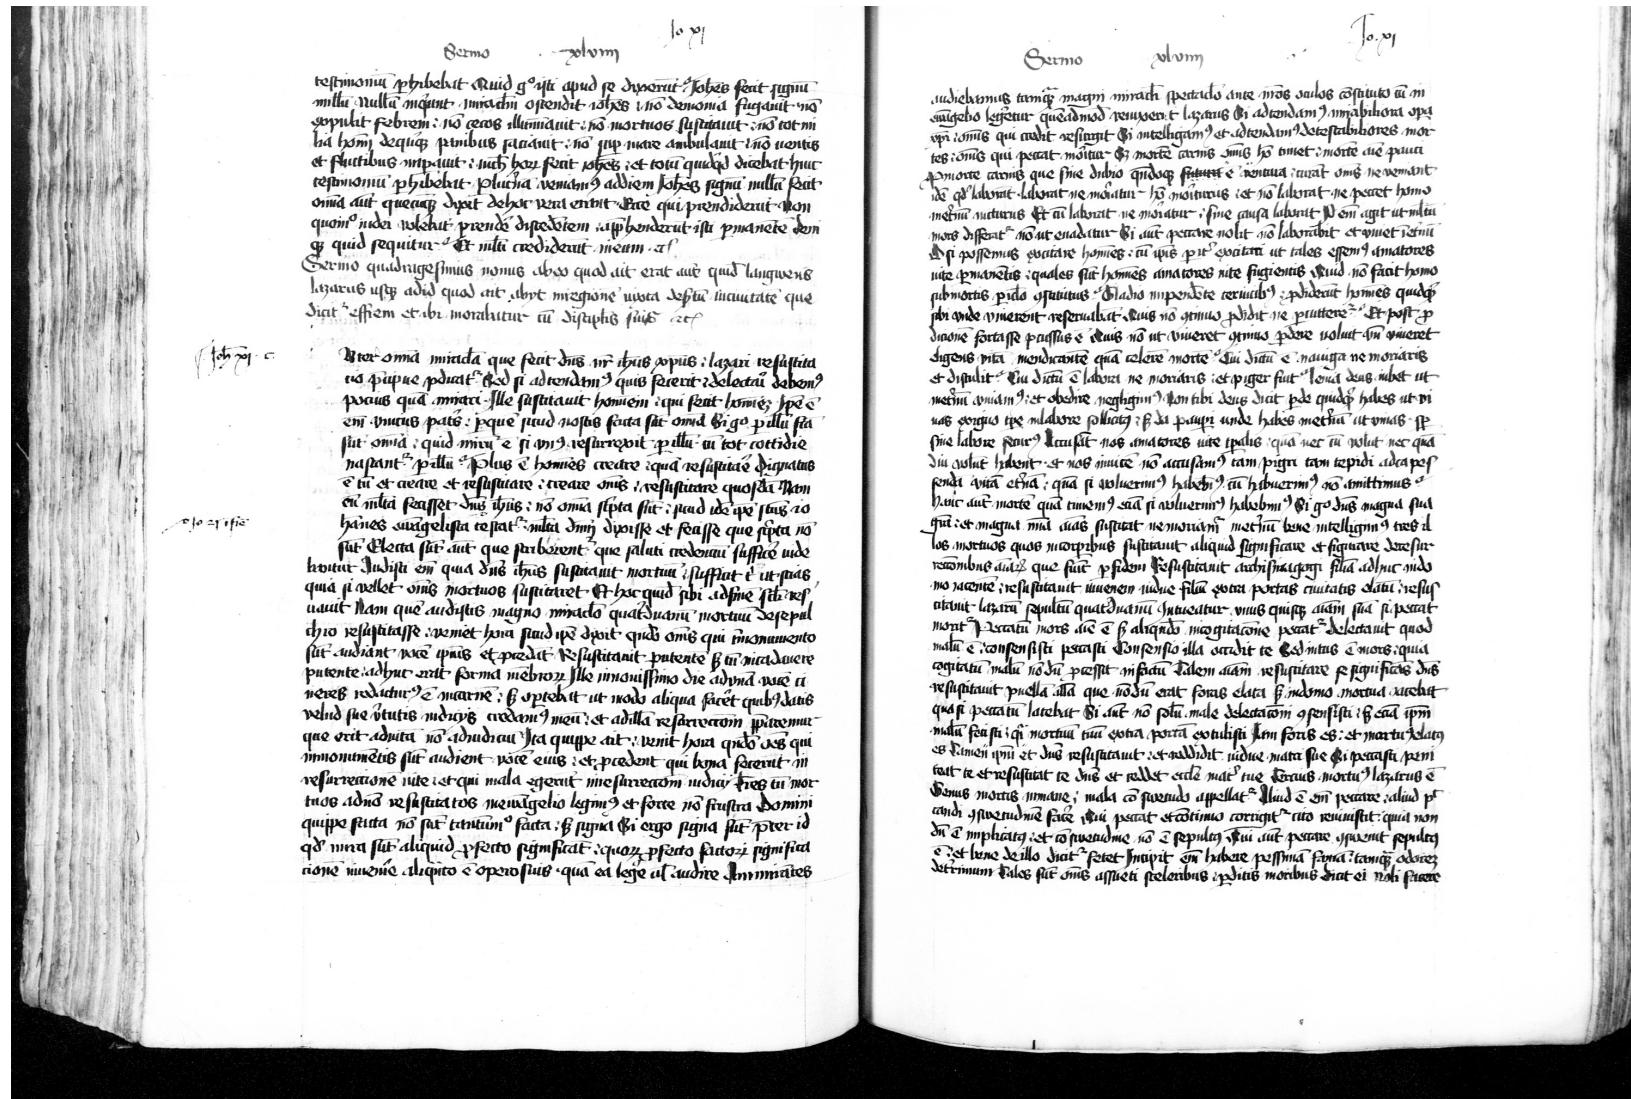 Jo xi
Sermo xlviiii
testimoniū phibebat Quid gº isti apud se dixerūt Johēs fecit signū
nullū Nullū inquūt miraclm ostendit iohēs nō demonia fugauit nō
expulit febrem nō cecos illuminauit nō mortuos suscitauit nō tot mi
lia homī de qnq panibus saciauit nō sup mare ambulauit nō uentis
et fluctibus impauit nich horz fecit iohēs et totū qudqd dicebat huic
testimoniū phibebat veniamꝰ ad diem Johēs signū nullū fecit
omīa aut quecūqz dixit de hoc vera erant Ecce qui prendiderūt Non
quomº iudei volebāt prendē discedētem appħenderūt isti pmanētē Deni
qz quid sequitur Et mlti crediderūt in eum etc
Sermo quadragesimus nonus ab eo quod ait erat aut quid langwens
lazarus usqz ad id quod ait abyt in regionē iuxta desertū in ciuitatē que
dicitr effrem et ibi morabatur cū disciplis suis etc
Joh xi c.
Nter omīa miracla que fecit dns nr ihus xpus lazari resuscita
tio pcipue pdicatr Sed si adtendamꝰ quis fecerit delectari debemꝰ
pocius quā mirari Ille suscitauit hominem qui fecit hominez Ipse ē
em vnicus patris p quē sicut nostis facta sūt omīa Si gº p illū fcā
sūt omīa quid mirū ē si vnꝰ resurrexit p illū cū tot cottidie
nascantr p illū Plus ē homines creare quā resuscitare Dignatus
ē tn et creare et resuscitare creare omīs resuscitare quosdā Nam
cū mlta fecisset dns ihus nō omīa scripta sūt sicut idē ipse scūs io
hānes ewāgelista testatr mlta dnm dixisse et fecisse que scripta nō
sūt Electa sūt aut que scriberent que saluti credenciū sufficē vide
bantur Audisti em quia dns ihus suscitauit mortuū sufficit t ut scias
quia si vellet omīs mortuos suscitaret Et hoc quid sibi ad finē scli res
uauit Nam quē audistis magno miraclo quatriduanū mortuū de sepul
chro resuscitasse veniet hora sicut ipse dixit qndo omīs qui i monumento
sūt audiant vocē ipsius et pcedāt Resuscitauit putente sz tn in cadauere
putente adhuc erat forma mēbrorz Ille in nouissimo die ad vnā vocē ci
neres reducturꝰ ē in carnē sz oportebat ut modo aliqua facēt quibꝰ datis
velud sue virtutis indicijs credamꝰ in eū et ad illā resurrectōem pparemur
que erit ad vitā nō ad iudiciū Ita quippe ait venit hora qndo oēs qui
in monumētis sūt audient vocē eius et pcedent qui bona fecerūt in
resurrectionē vite et qui mala egerūt in resurrectōem iudicij Tres tn mor
tuos a dno resuscitatos in ewāgelio legimꝰ et forte nō frustra Domini
quippe facta nō sūt tantumº facta sz signa Si ergo signa sūt preter id
qd mira sūt aliquid pfecto significāt quorz pfecto factorz significa
cionē inuenire aliqnto ē operosius quā ea lege ul audire Ammirātes
Jo. xi
Sermo xlviiii
audiebamus tamqz magni miraclī spectaclo ante nros oculos constituto cū in
ewāgelio legeretur quēadmod reuixerit lazarus Si adtendamꝰ mirabiliora opa
xpi omīs qui credit resurgit Si intelligamꝰ et adtendamꝰ detestabiliores mor
tes omīs qui peccat moritur Sz mortē carnis omīs hō timet mortē aīe pauci
Pro morte carnis que sine dubio qndoqz futura ē ventura curāt omīs ne veniant
idē qd laborāt laborat ne moriatur hō moriturus et nō laborat ne peccet homo
in eternū victurus Et cū laborat ne moriatur sine causa laborat Id em agit ut mltū
mors differatr nō ut euadatur Si aut peccare nolit nō laborabit et viuet i eternū
O si possemus excitare homines cū ipsis pitr excitari ut tales essemꝰ amatores
uite pmanētis quales sūt homines amatores uite fugientis Quid nō facit homo
sub mortis piclo cstitutus Gladio impendēte ceruicibꝰ pdiderūt homines quidqd
sibi unde viuerent reseruabāt Quis nō ctinuo pdidit ne pcutteretr Et post p
dicionē fortasse pcussus ē Quis nō ut viueret ctinuo pdere voluit vn viueret
eligens vitā mendicantē quā celerē mortē Cui dictū ē nauiga ne moriaris
et distulit Cui dictū ē labora ne moriaris et piger fuit leuia deus iubet ut
in eternū viuamꝰ et obedire negligimꝰ Non tibi deus dicit pde quidqd habes ut vi
uas exiguo tpe in labore sollicitꝰ sz da paupi unde habes in eternū ut viuas sp
sine labore securꝰ Accusāt nos amatores uite tpalis quā nec cū volūt nec quā
diu volūt habent et nos inuicē nō accusamꝰ tam pigri tam tepidi ad capes
sendā vitā eternā quā si voluerimꝰ habebimꝰ cū habuerimꝰ nō amittimus
hanc aut mortē quā timemꝰ eciā si noluerimꝰ habebimꝰ Si gº dns magna sua
gra et magna mia aīas suscitat ne moriamr in eternū bene intelligimꝰ tres il
los mortuos quos in corporibus suscitauit aliquid significare et figurare de resur
rectōnibus aīarz que fiūt p fidem Resuscitauit archisynagogi filiā adhuc in do
mo iacentē resuscitauit iuuenem vidue filiū extra portas ciuitatis elatū resus
citauit lazarū sepultū quatriduanū Intueatur vnus quisqz aīam suā si peccat
moritr Peccatū mors aīe ē sz aliqndo in cogitacōne peccatr delectauit quod
malū ē consensisti peccasti Consensio illa occidit te Sed intus ē mors quia
cogitatū malū nōdū pcessit in factū Talem aīam resuscitare se significās dns
resuscitauit puellā illā que nōdū erat foras elata sz in domo mortua iacebat
quasi peccatū latebat Si aut nō solū male delectacōni csensisti sz eciā ipm
malū fecisti qi mortuū tuū extra portā extulisti Iam foris es et mortuꝰ elatus
es Tamen ipm et dns resuscitauit et reddidit vidue matri sue Si peccasti peni
teat te et resuscitat te dns et reddet ecclie matr tue Tercius mortuꝰ lazarus ē
Genus mortis inmane mala consuetudo appellatr Aliud ē em peccare aliud pec
candi csuetudinē facē Qui peccat et continuo corrigitr cito reuiuiscit quia non
dū ē implicatꝰ et consuetudine nō ē sepultꝰ Qui aut peccare csueuit sepultꝰ
ē et bene de illo dicitr fetet Incipit em habere pessimā famā tamqz odorez
deterrimum Tales sūt omīs assueti sceleribus pditis moribus dicit ei noli facere